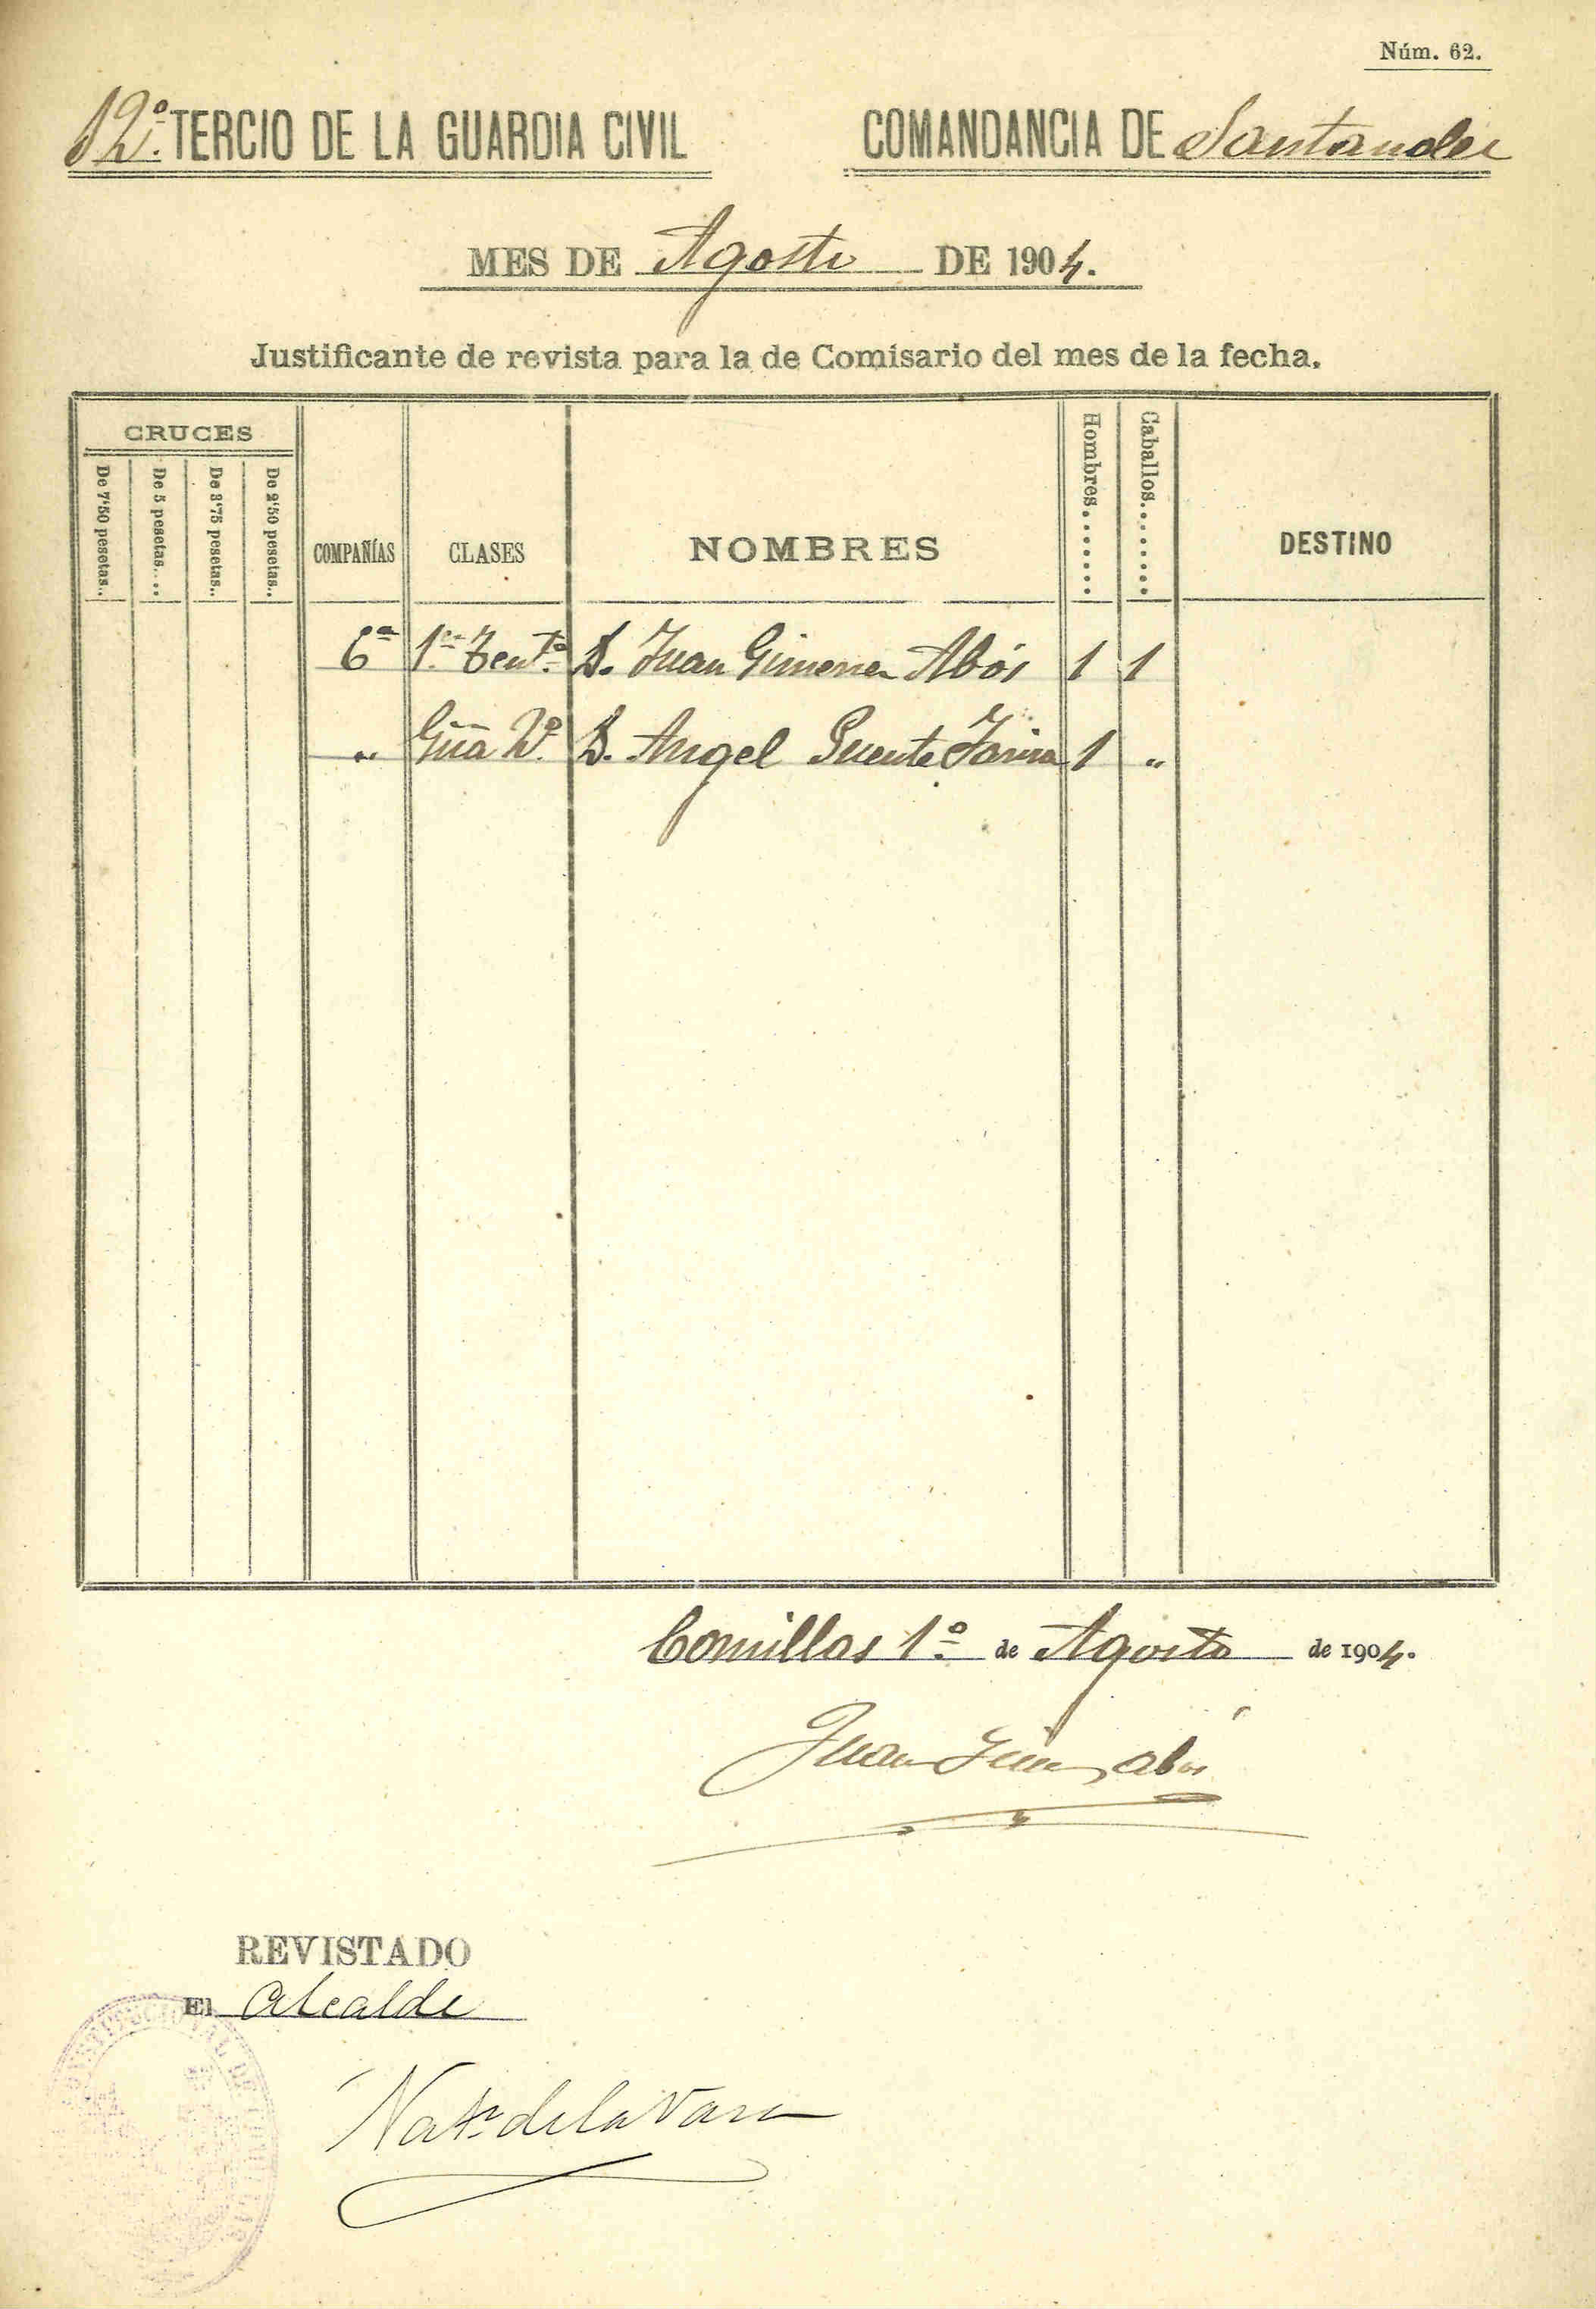 Núm. 62.
12º TERCIO DE LA GUARDIA CIVIL COMANDANCIA DE Santander
MES DE Agosto DE 1904.
Justificante de revista para la de Comisario del mes de la fecha.
CRUCES
De 7'50 pesetas..
De 5 pesetas....
De 3'75 pesetas..
De 2'50 pesetas..
COMPAÑÍAS
CLASES
NOMBRES
Hombres.......
Caballos........
DESTINO
6ª 1er Tente D. Juan Gimenez Abós 1 1
" Gúa 2º D. Angel Puente 1 "
Comillas 1º de Agosto de 1904.
Juan Abós
REVISTADO
El Alcalde
de la Vara